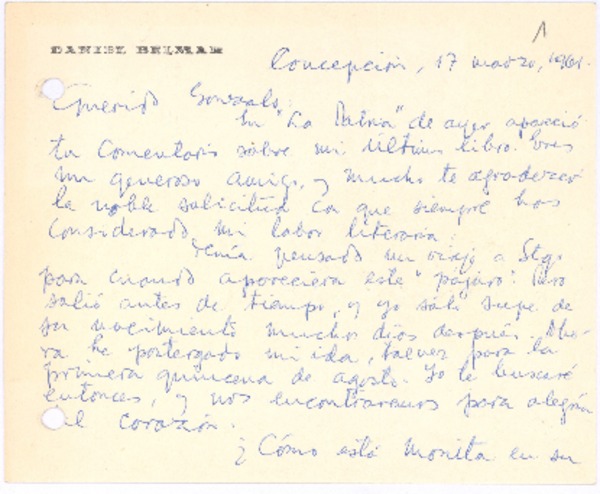 1
DANIEL BELMAR
Concepción, 17 marzo, 1961.
Querido Gonzalo:
En "La Patria" de ayer apareció
tu comentario sobre mi último libro. Eres
un generoso amigo, y mucho te agradezco
la noble solicitud con que siempre has
considerado mi labor literaria.
Tenía pensado un viaje a Stgo
para cuando apareciera este "pájaro". Pero
salió antes de tiempo, y yo sólo supe de
su nacimiento muchos días después. Aho-
ra he postergado mi ida, talvez para la
primera quincena de agosto. Yo te buscaré
entonces, y nos encontraremos para alegría
del corazón.
¿Cómo está Monita en su